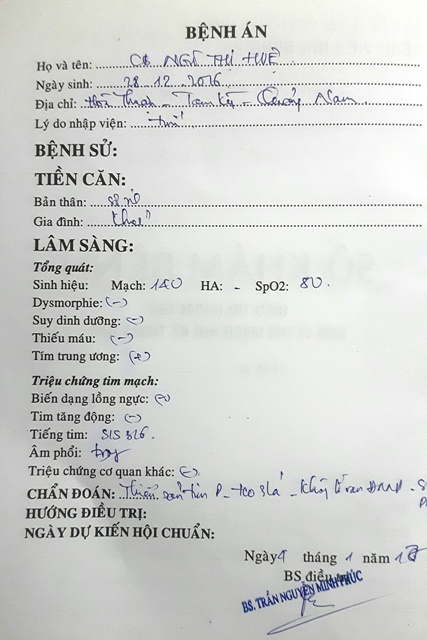 BỆNH ÁN
Họ và tên: CB NGÔ THỊ HUỆ
Ngày sinh: 28.12.2016
Địa chỉ: Hòa Thanh - Tam Kỳ - Quảng Nam
Lý do nhập viện: tím
BỆNH SỬ:
TIỀN CĂN:
Bản thân:
Gia đình: khoẻ
LÂM SÀNG:
Tổng quát:
Sinh hiệu: Mạch: 140 HA: - SpO2: 80.
Dysmorphie: (-)
Suy dinh dưỡng: (-)
Thiếu máu: (-)
Tím trung ương: (+)
Triệu chứng tim mạch:
Biến dạng lồng ngực: (-)
Tim tăng động: (-)
Tiếng tim:
Âm phổi: trong
Triệu chứng cơ quan khác: (-)
CHẨN ĐOÁN: Thiểu sản tim P - hở 3 lá - Không lỗ van ĐMP -
HƯỚNG ĐIỀU TRỊ:
NGÀY DỰ KIẾN HỘI CHUẨN:
Ngày tháng 1 năm
BS điều trị
BS. TRẦN NGUYỄN MINH PHÚC